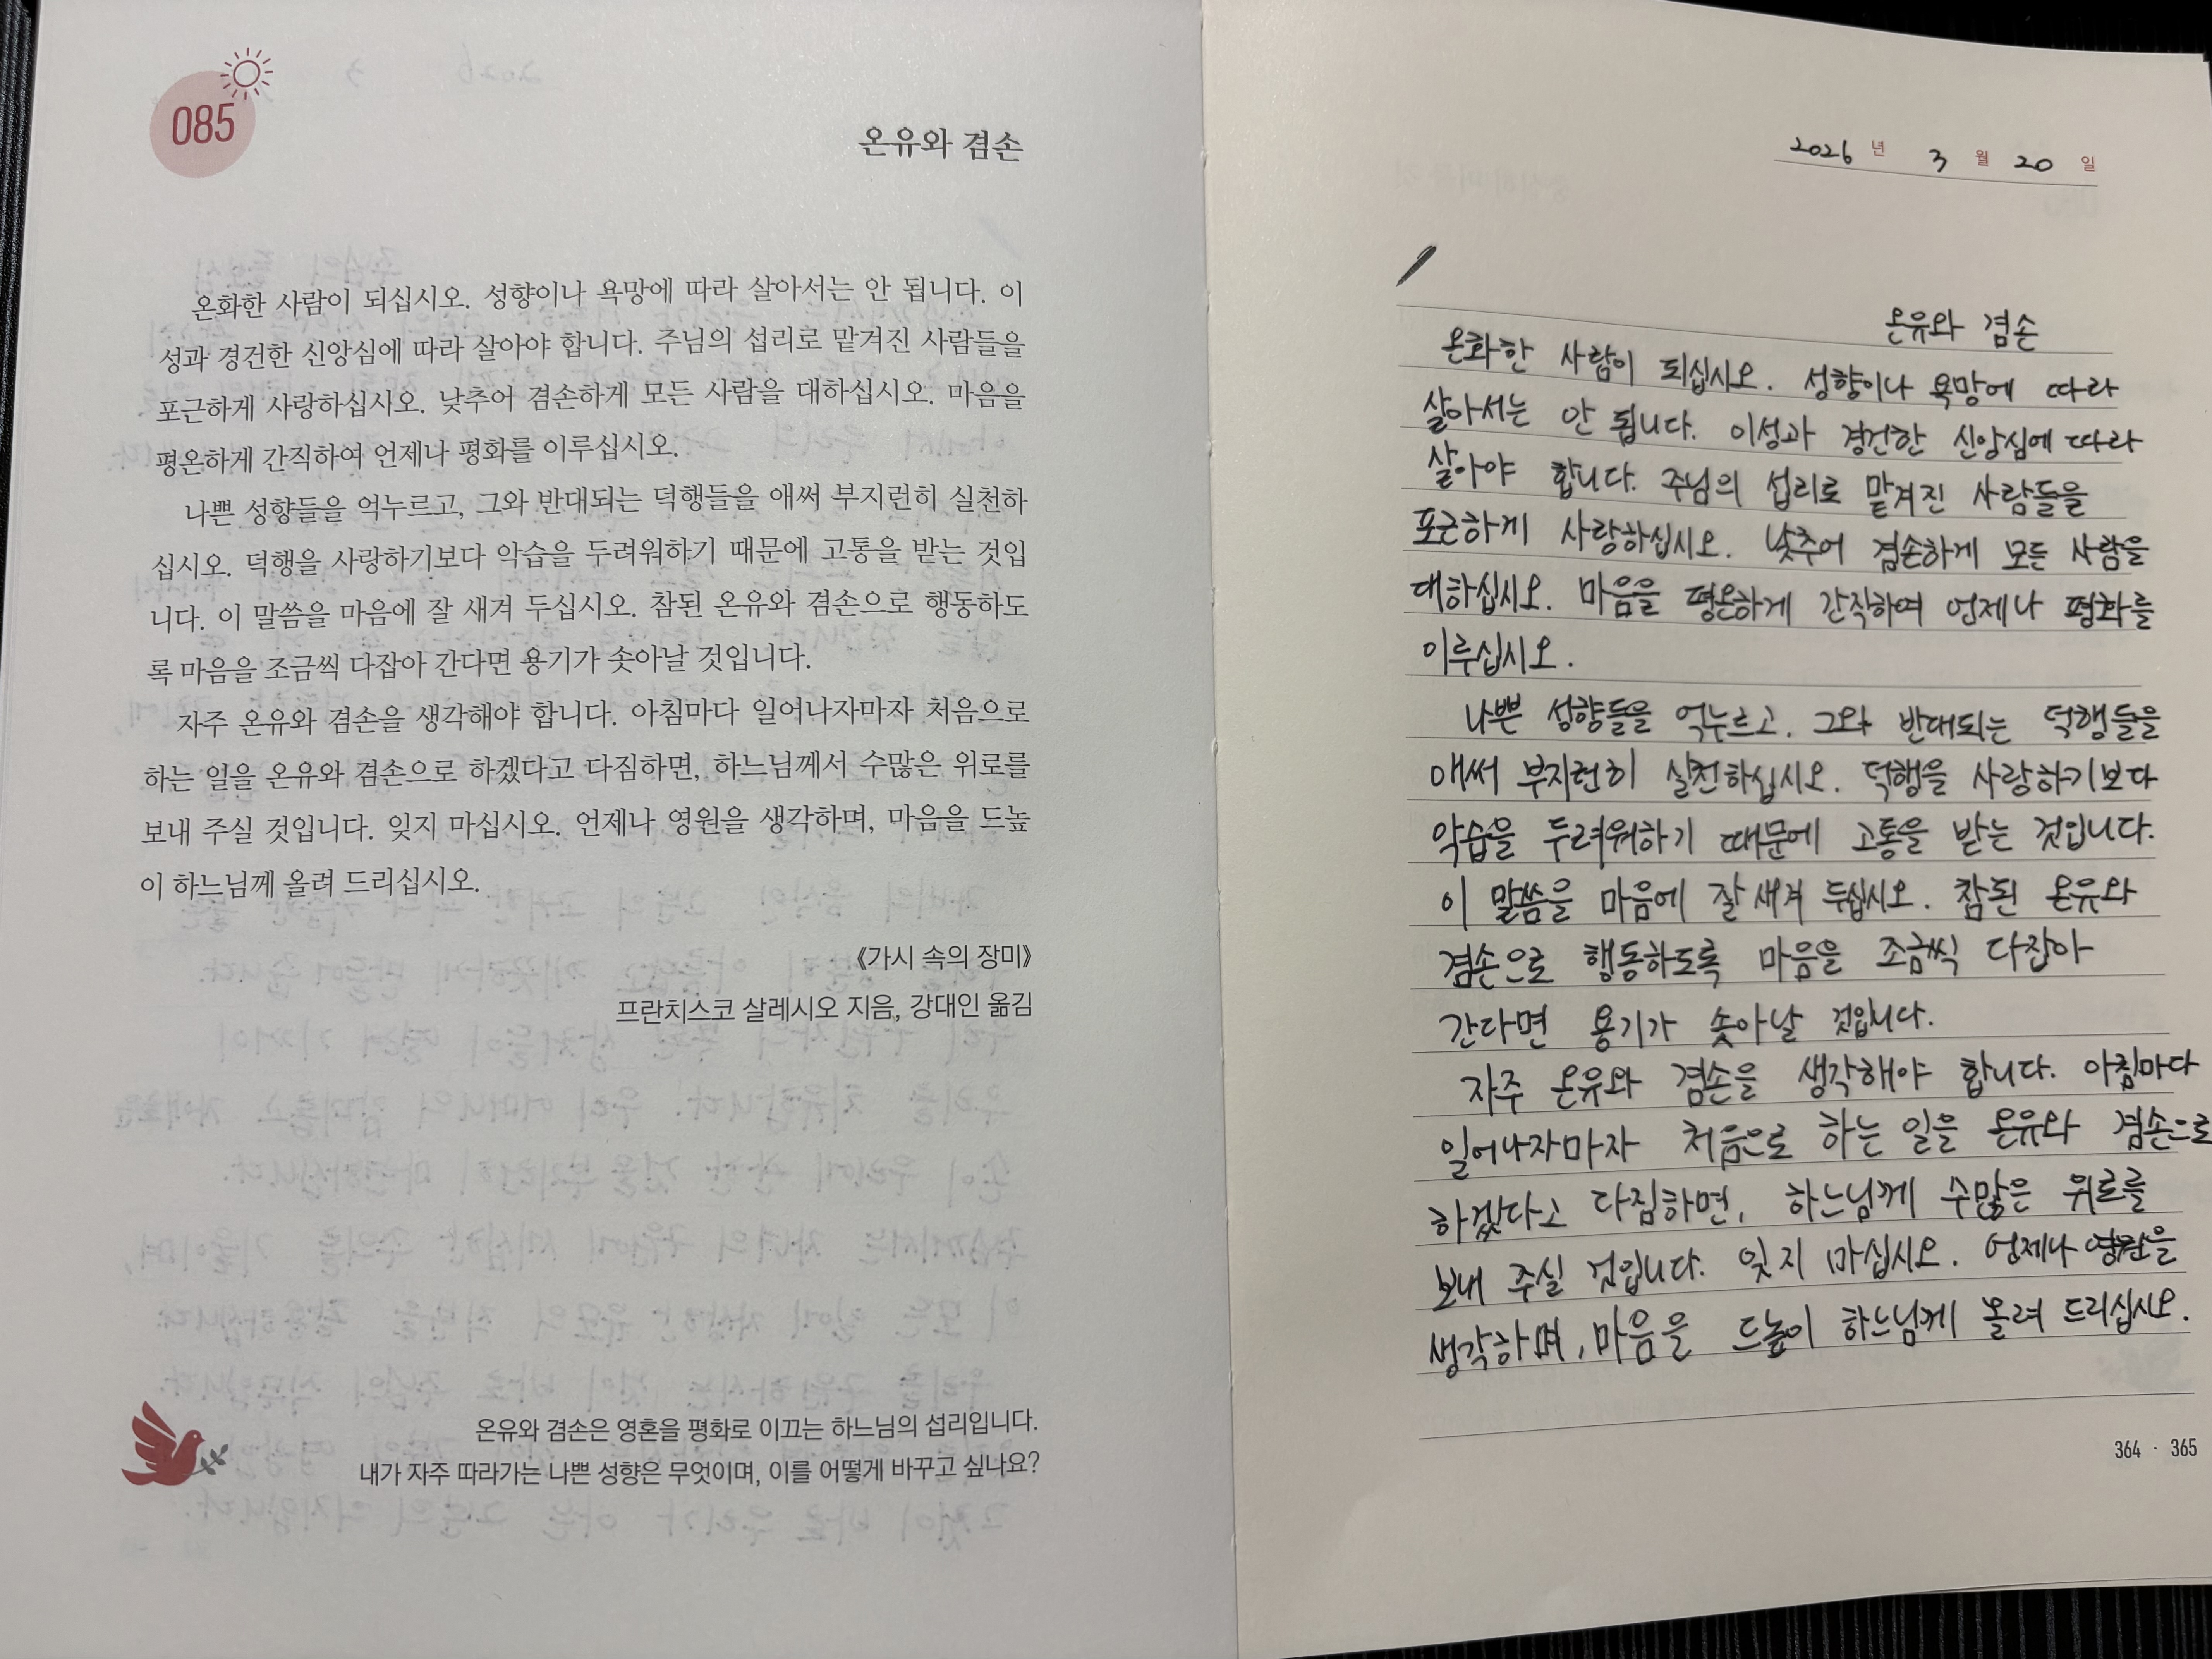 085
온유와 겸손
온화한 사람이 되십시오. 성향이나 욕망에 따라 살아서는 안 됩니다. 이
성과 경건한 신앙심에 따라 살아야 합니다. 주님의 섭리로 맡겨진 사람들을
포근하게 사랑하십시오. 낮추어 겸손하게 모든 사람을 대하십시오. 마음을
평온하게 간직하여 언제나 평화를 이루십시오.
나쁜 성향들을 억누르고, 그와 반대되는 덕행들을 애써 부지런히 실천하
십시오. 덕행을 사랑하기보다 악습을 두려워하기 때문에 고통을 받는 것입
니다. 이 말씀을 마음에 잘 새겨 두십시오. 참된 온유와 겸손으로 행동하도
록 마음을 조금씩 다잡아 간다면 용기가 솟아날 것입니다.
자주 온유와 겸손을 생각해야 합니다. 아침마다 일어나자마자 처음으로
하는 일을 온유와 겸손으로 하겠다고 다짐하면, 하느님께서 수많은 위로를
보내 주실 것입니다. 잊지 마십시오. 언제나 영원을 생각하며, 마음을 드높
이 하느님께 올려 드리십시오.
《가시 속의 장미》
프란치스코 살레시오 지음, 강대인 옮김
온유와 겸손은 영혼을 평화로 이끄는 하느님의 섭리입니다.
내가 자주 따라가는 나쁜 성향은 무엇이며, 이를 어떻게 바꾸고 싶나요?
2026 년 3 월 20 일
온유와 겸손
온화한 사람이 되십시오. 성향이나 욕망에 따라
살아서는 안 됩니다. 이성과 경건한 신앙심에 따라
살아야 합니다. 주님의 섭리로 맡겨진 사람들을
포근하게 사랑하십시오. 낮추어 겸손하게 모든 사람을
대하십시오. 마음을 평온하게 간직하여 언제나 평화를
이루십시오.
나쁜 성향들을 억누르고. 그와 반대되는 덕행들을
애써 부지런히 실천하십시오. 덕행을 사랑하기보다
악습을 두려워하기 때문에 고통을 받는 것입니다.
이 말씀을 마음에 잘 새겨 두십시오. 참된 온유와
겸손으로 행동하도록 마음을 조금씩 다잡아
간다면 용기가 솟아날 것입니다.
자주 온유와 겸손을 생각해야 합니다. 아침마다
일어나자마자 처음으로 하는 일을 온유와 겸손으로
하겠다고 다짐하면, 하느님께 수많은 위로를
보내 주실 것입니다. 잊지 마십시오. 언제나 영원을
생각하며, 마음을 드높이 하느님께 올려 드리십시오.
364 · 365